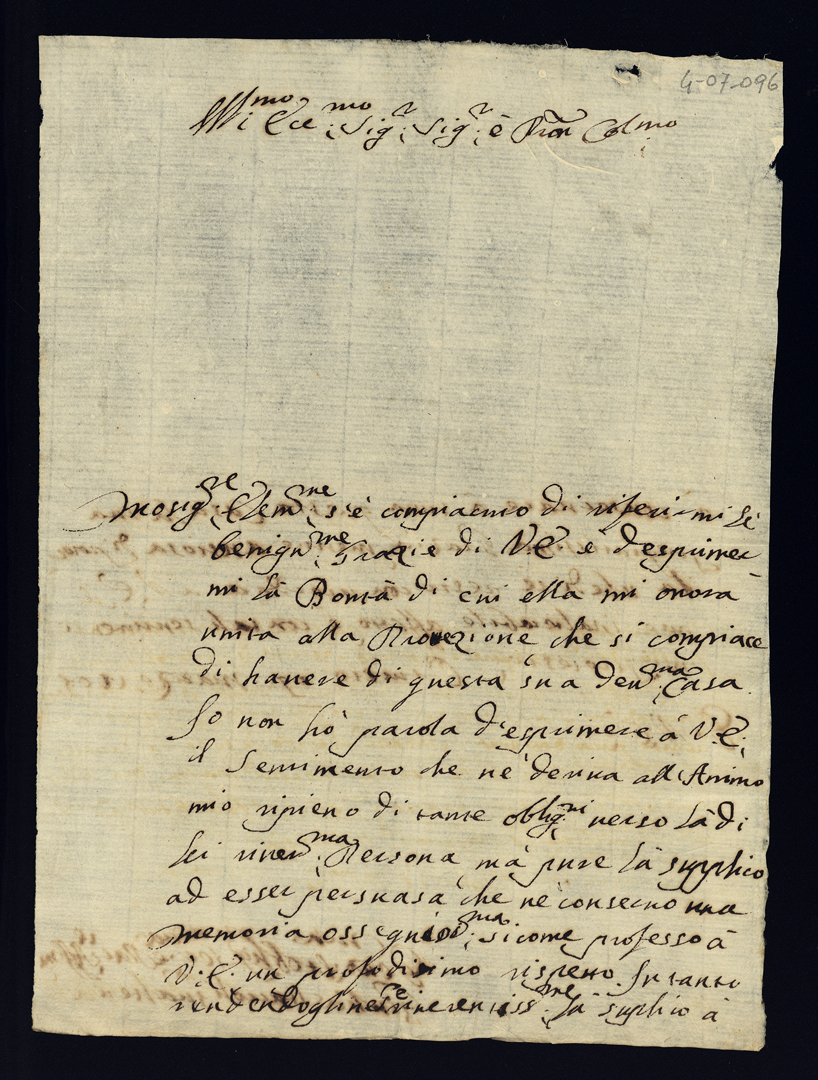 4-07-096
Ill:mo Ecc:mo Sig:r Sig:r e Pron Col:mo
Mosig:re Elem:me s'è compiaciuto di riferirmi le
benign:me Grazie di V.E. e d'esprimer
mi la Bontà di cui ella mi onora
unita alla Protezione che si compiace
di havere di questa sua dev:ma Casa
Io non hò parola d'esprimere à V.E.
il Sentimento che ne deriva all'Animo
mio ripieno di tante oblig:ni verso là di
lei river:ma Persona, mà pure là supplico
ad esser persuasa che ne conservo una
memoria ossequios:ma, sicome professo à
V.E. un profodisimo rispetto. Intanto
rendendogline reverentiss:me là suplico à